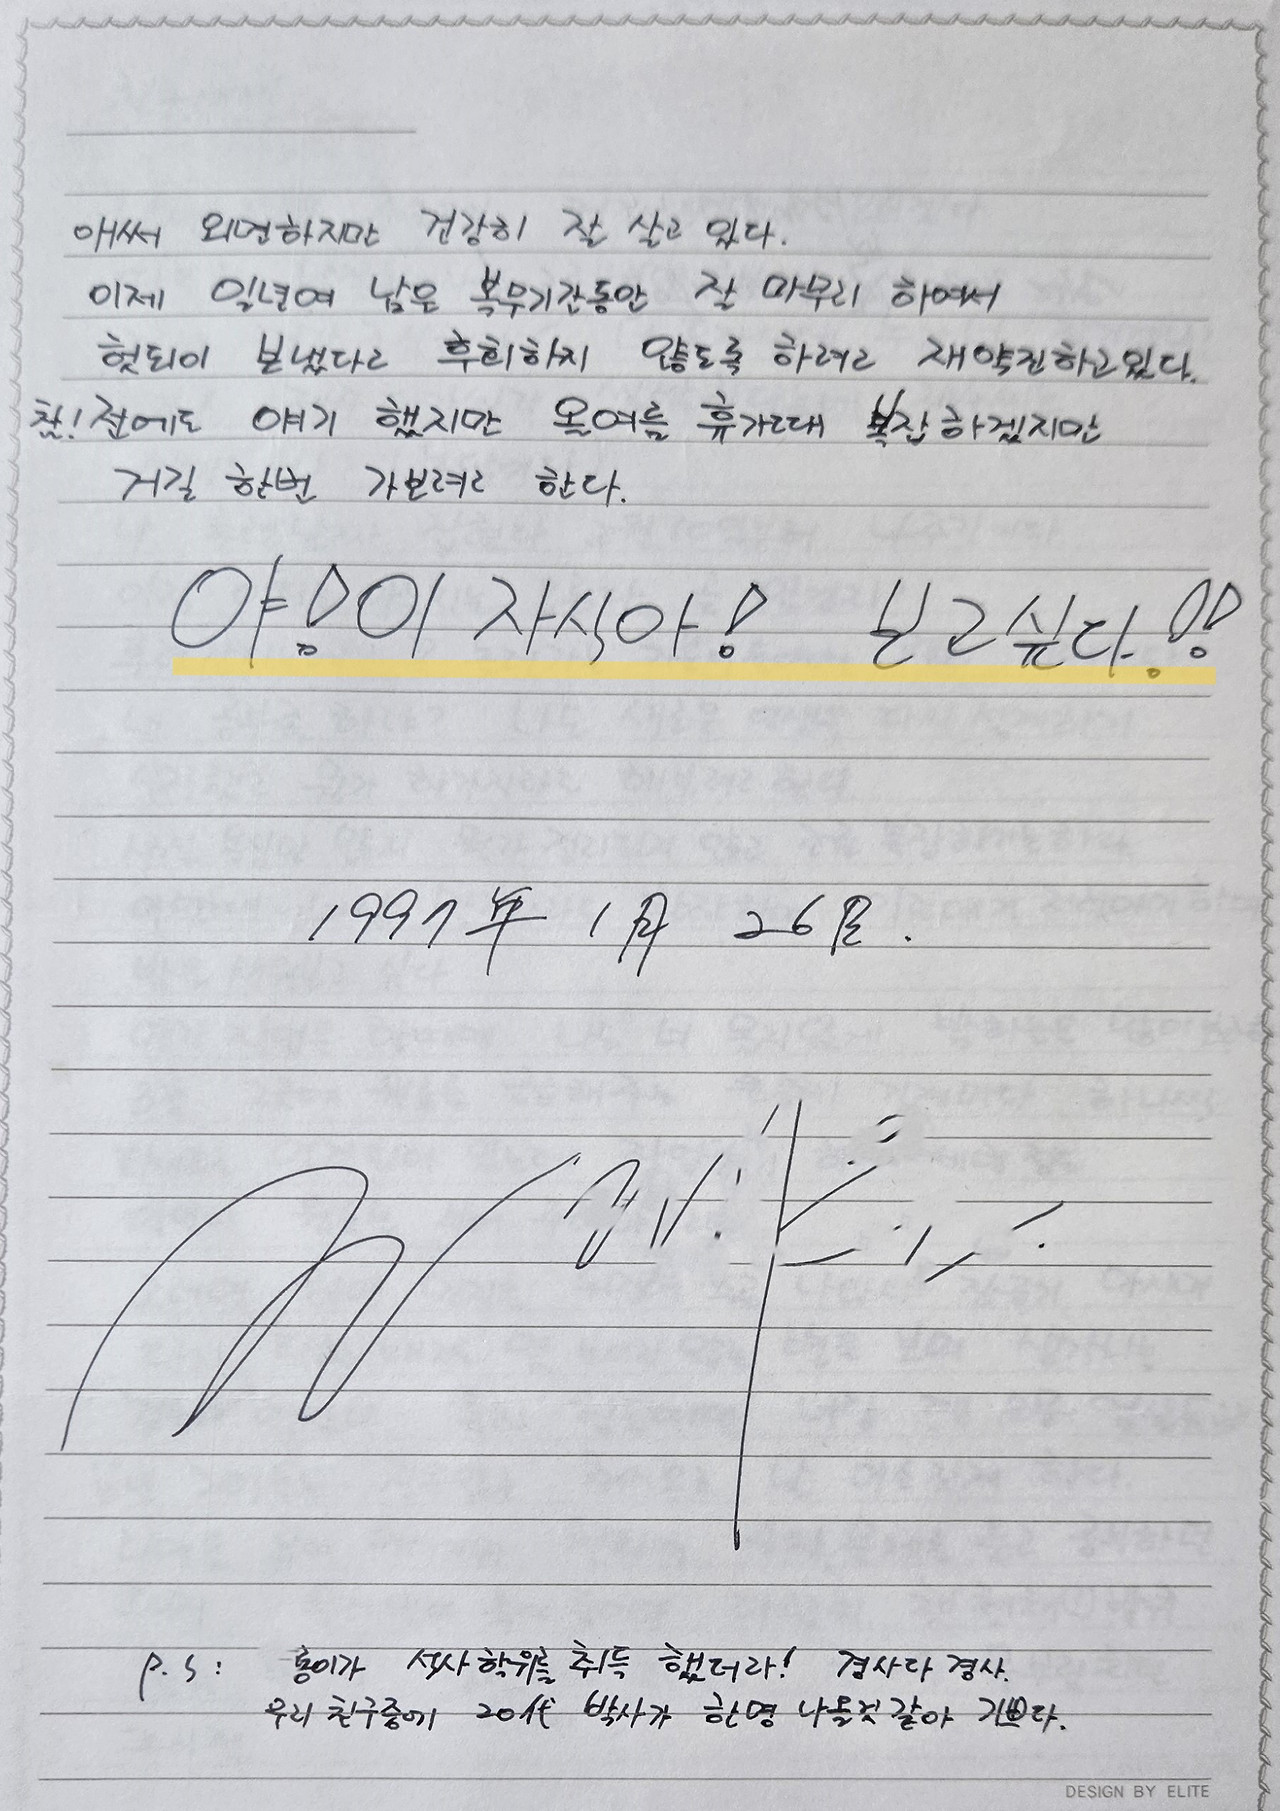 애써 외면하지만 건강히 잘 살고 있다.
이제 일년여 남은 복무기간동안 잘 마무리 하여서
헛되이 보냈다고 후회하지 않도록 하려고 재약진하고있다.
참! 전에도 얘기 했지만 올여름 휴가때 복잡하겠지만
거길 한번 가보려고 한다.
야!이 자식아! 보고싶다.!!
1997年 1月 26日.
P.S: 홍이가 석사학위를 취득 했더라! 경사다 경사.
우리 친구중에 20代 박사가 한명 나올것 같아 기쁘다.
DESIGN BY ELITE